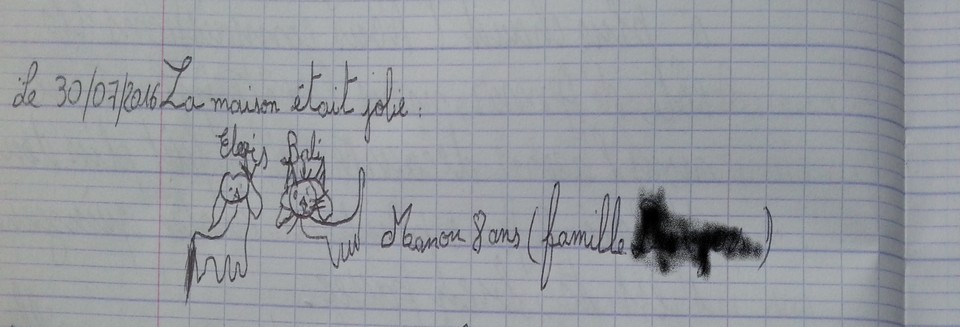 Le 30/07/2016 La maison était jolie.
Bali
Manon 8 ans (famille )